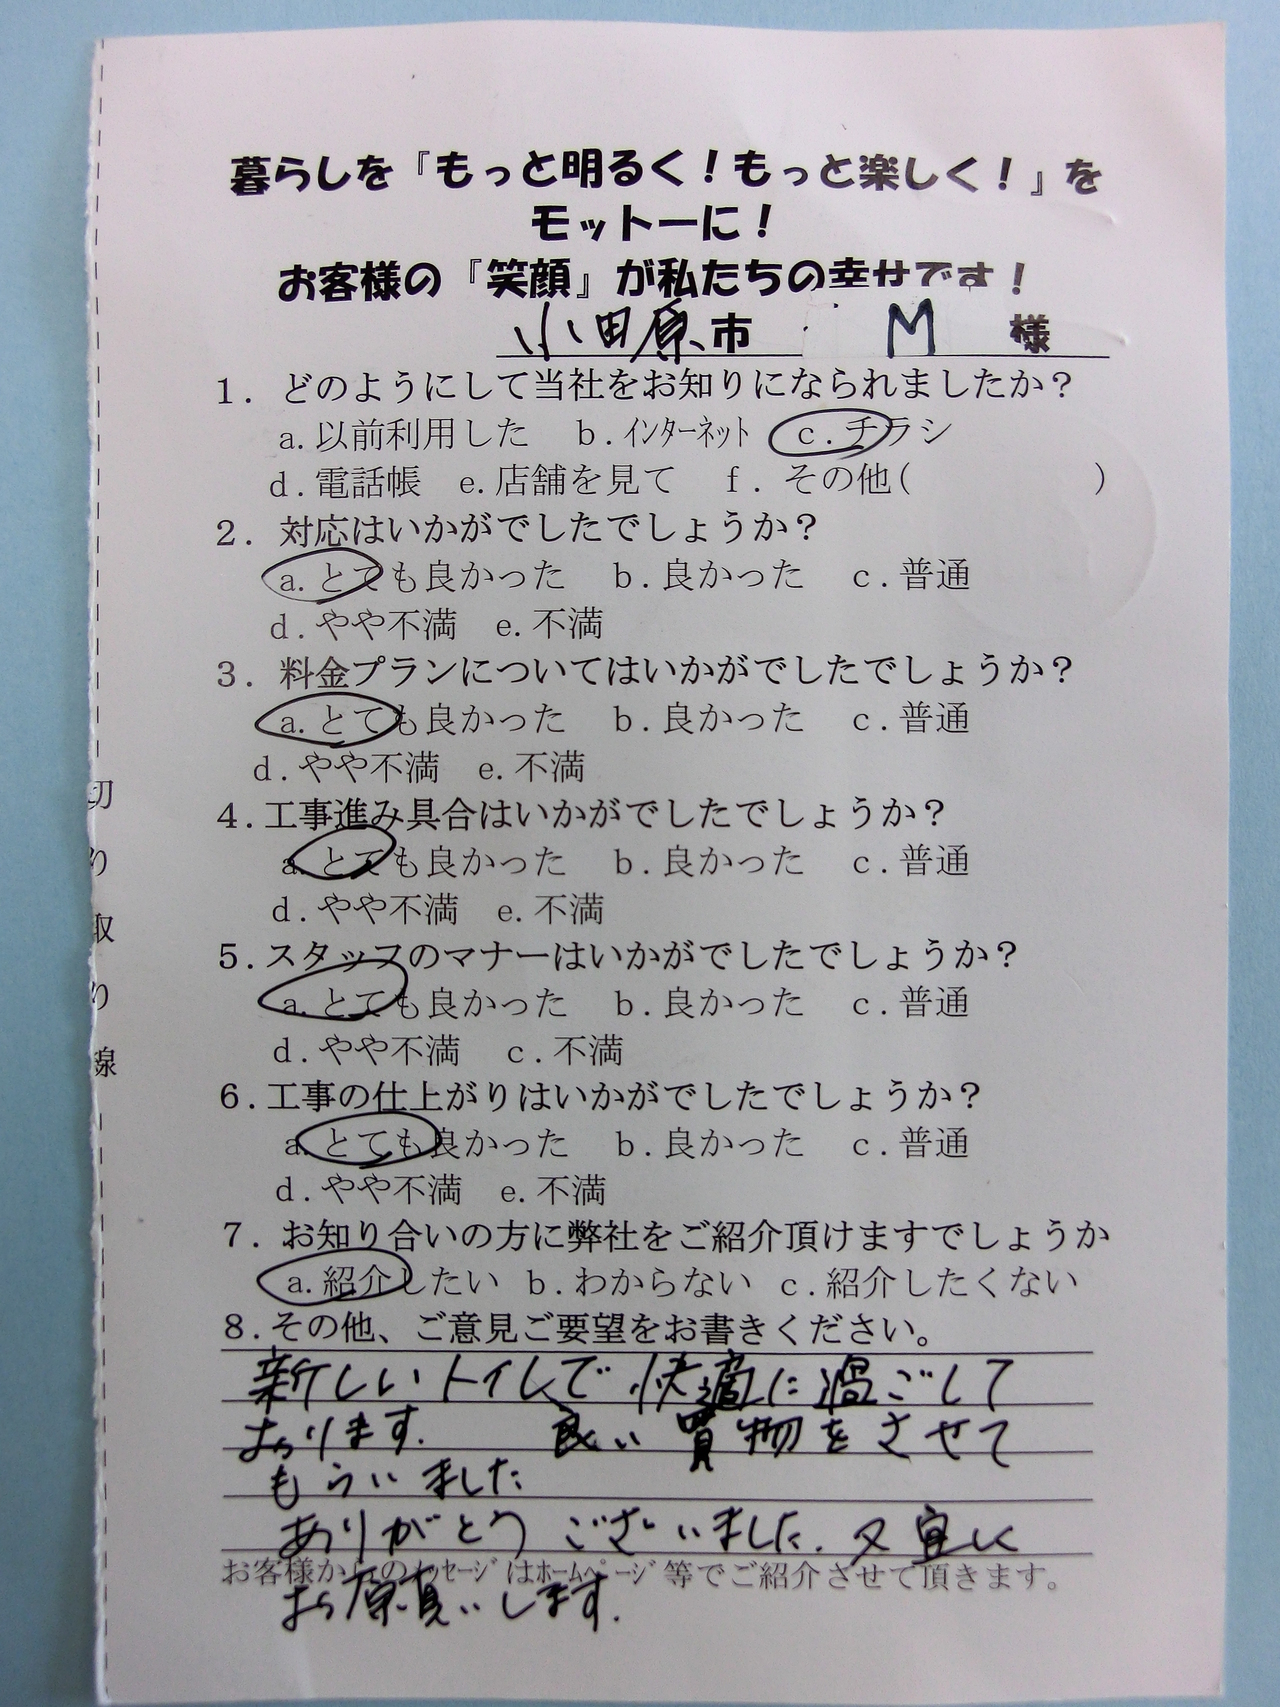 暮らしを『もっと明るく！もっと楽しく！』を
モットーに！
お客様の『笑顔』が私たちの幸せです！
小田原市 M 様
1. どのようにして当社をお知りになられましたか？
a.以前利用した b.ｲﾝﾀｰﾈｯﾄ c.チラシ
d.電話帳 e.店舗を見て f. その他( )
2. 対応はいかがでしたでしょうか？
a.とても良かった b.良かった c.普通
d.やや不満 e.不満
3. 料金プランについてはいかがでしたでしょうか？
a.とても良かった b.良かった c.普通
d.やや不満 e.不満
4.工事進み具合はいかがでしたでしょうか？
a.とても良かった b.良かった c.普通
d.やや不満 e.不満
5.スタッフのマナーはいかがでしたでしょうか？
a.とても良かった b.良かった c.普通
d.やや不満 c.不満
6.工事の仕上がりはいかがでしたでしょうか？
a.とても良かった b.良かった c.普通
d.やや不満 e.不満
7. お知り合いの方に弊社をご紹介頂けますでしょうか
a.紹介したい b.わからない c.紹介したくない
8.その他、ご意見ご要望をお書きください。
新しいトイレで快適に過ごして
おります. 良い買物をさせて
もらいました
ありがとうございました. 又宜しく
お客様からのﾒｯｾｰｼﾞはﾎｰﾑﾍﾟｰｼﾞ等でご紹介させて頂きます。
お願いします.
切り取り線